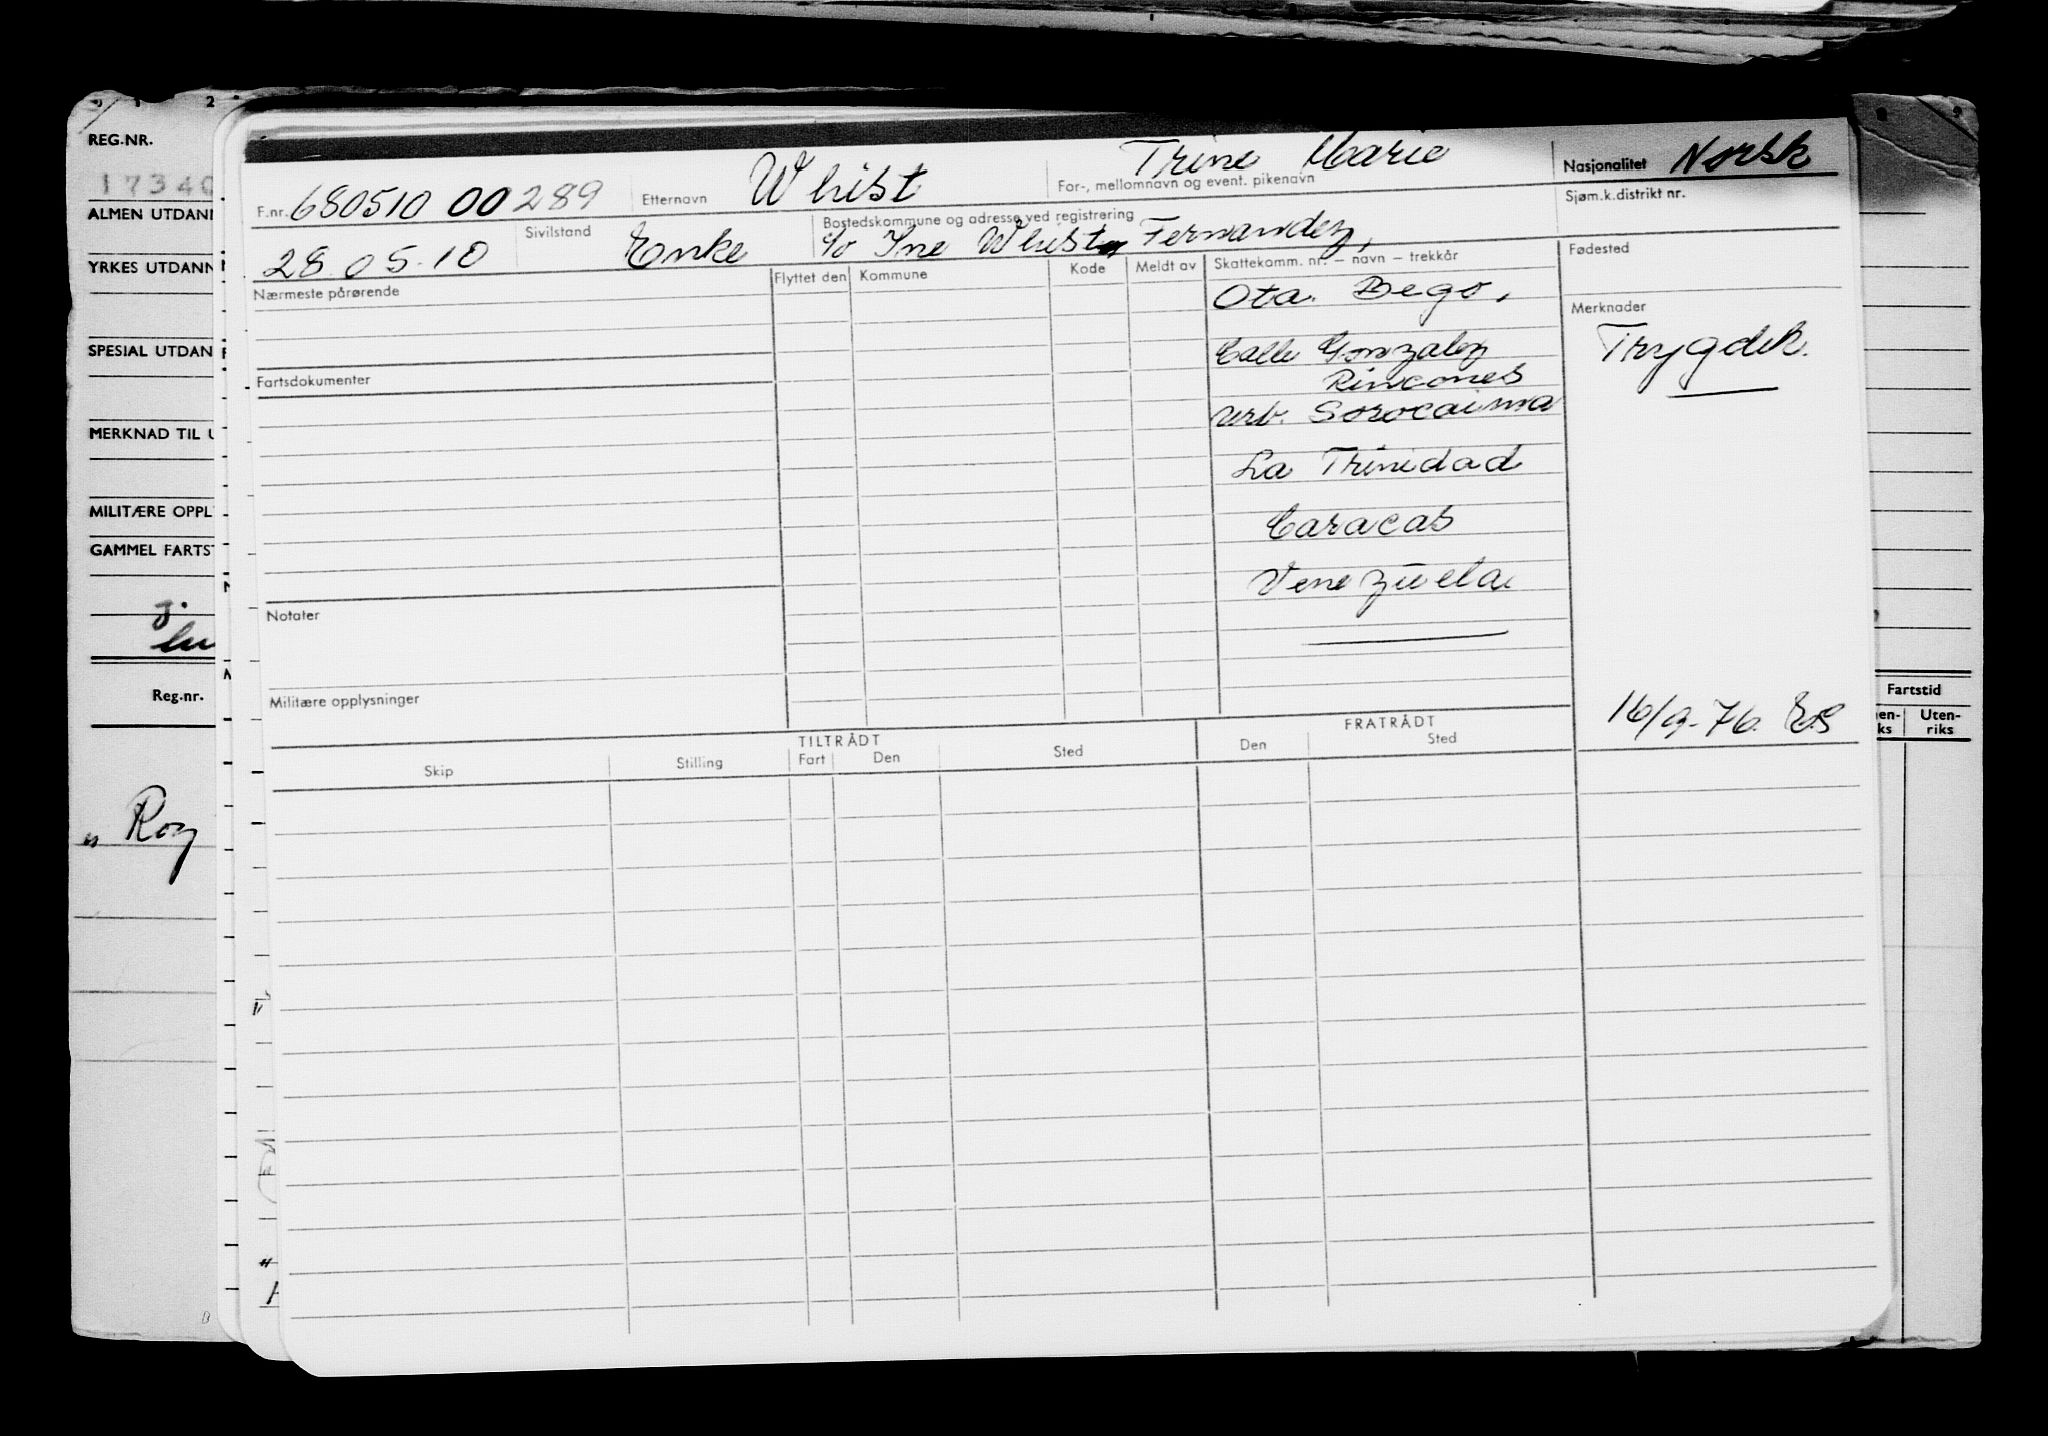 REG.NR.
1 7 3 4 0
ALMEN UTDANN
YRKES UTDANN
SPESIAL UTDAN
MERKNAD TIL U
MILITÆRE OPPL
GAMMEL FARTST
Reg.nr.
" Roy
F.nr. 680510 00289
Etternavn Whist
Trine Marie
For-, mellomnavn og event. pikenavn
Nasjonalitet Norsk
28.05.10
Sivilstand Enke
Bostedskommune og adresse ved registrering
c/o Ine Whist Fernandez,
Sjøm.k.distrikt nr.
Nærmeste pårørende
Flyttet den
Kommune
Kode
Meldt av
Skattekomm. nr. – navn – trekkår
Fødested
Ota. Bego,
Merknader
Calle Gonzalez
Rincones
Trygdek.
Fartsdokumenter
Urb. Sorocaima
La Trinidad
Caracas
Venezuela
Notater
Militære opplysninger
16/9-76. ES
TILTRÅDT
FRATRÅDT
Skip
Stilling
Fart
Den
Sted
Den
Sted
Fartstid
Uten-
riks